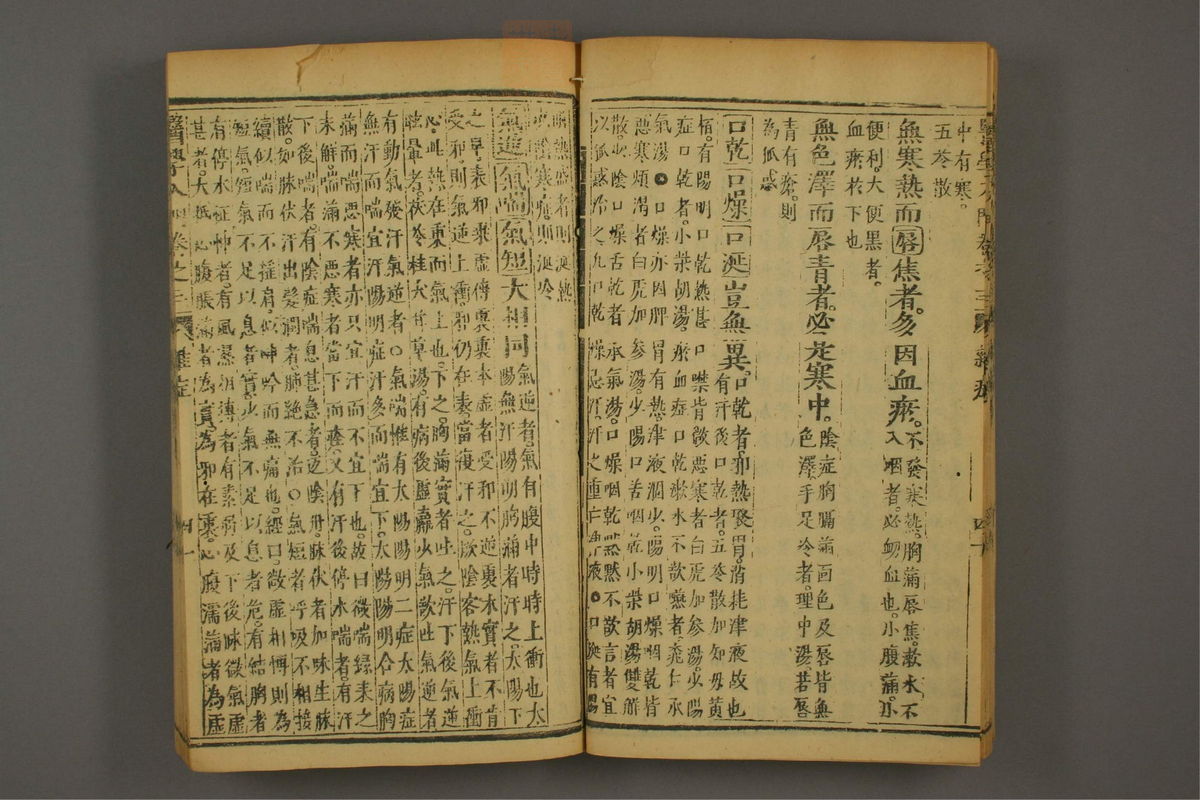 中有寒。
五苓散
無寒熱而唇焦者。多因血瘀。不發寒熱。胸滿唇焦。漱水不
入咽者。必衂血也。小腹滿。小
便利。大便黑者。
血瘀於下也
無色澤而唇青者。必定寒中。陰症胸膈滿面色及唇皆無
色澤手足冷者。理中湯。若唇
青有瘡。則
為狐惑
口乾口燥口涎豈無異。口乾者。邪熱聚胃。消耗津液故也
有汗後口乾者。五苓散加知母黃
栢。有陽明口乾熱甚口噤皆歓惡寒者白虎加參湯。少陽
症口乾者。小柴胡湯。瘀血症口乾漱水不歓嚥者。桃仁承
氣湯。○口燥亦因脾胃有熱。津液涸少。陽明口燥咽乾皆
惡寒煩渴者白虎加參湯。少陽口苦咽乾小柴胡湯雙解
散。少陰口燥舌乾者承氣湯。口燥咽乾默默不欲言者宜
以狐惑治之凡口乾燥忌汗。汗之重亡津液。○口涎有陽
明熱盛者則涎熱
或臟寒症則涎冷
氣逆氣喘氣短大相同氣逆者。氣有腹中時時上衝也太
陽無汗陽明胸滿者汗之。太陽下
之早。表邪乘虛傳裏裏本虛者受邪不逆裏本實者不肯
受邪。則氣逆上衝。邪仍在表。當復汗之。厥陰客熱氣上衝
心。此熱在裏而氣上也。下之。胸滿實者吐之。汗下後氣逆
眩暈者。茯苓桂朮甘草湯。有病後虛羸少氣歓吐氣逆者
有動氣發汗氣逆者○氣喘惟有太陽陽明二症太陽症
無汗而喘宜汗陽明症汗多而喘宜下。太陽陽明合病胸
滿而喘惡寒者亦只宜汗而不宜下也。故曰微喘緣表之
未解喘滿不惡寒者當下而痊。又有汗後停水喘者。有汗
下後喘者。有陰症喘息甚急者。返陰丹。脉伏者加味生脉
散。如脉伏汗出髮潤者。肺絶不治○氣短者呼吸不相接
續似喘而不搖肩。似呻吟而無痛也。經曰。歓虛相愽則為
短氣。短氣不足以息者實。少氣不足以息者危。有結胸者
有停水怔忡者。有風濕相溥者有素弱及下後脉微氣虛
甚者。大抵心腹脹滿者為實。為邪在裏。心腹濡滿者為虛
醫學入門卷之三 雜症 四一